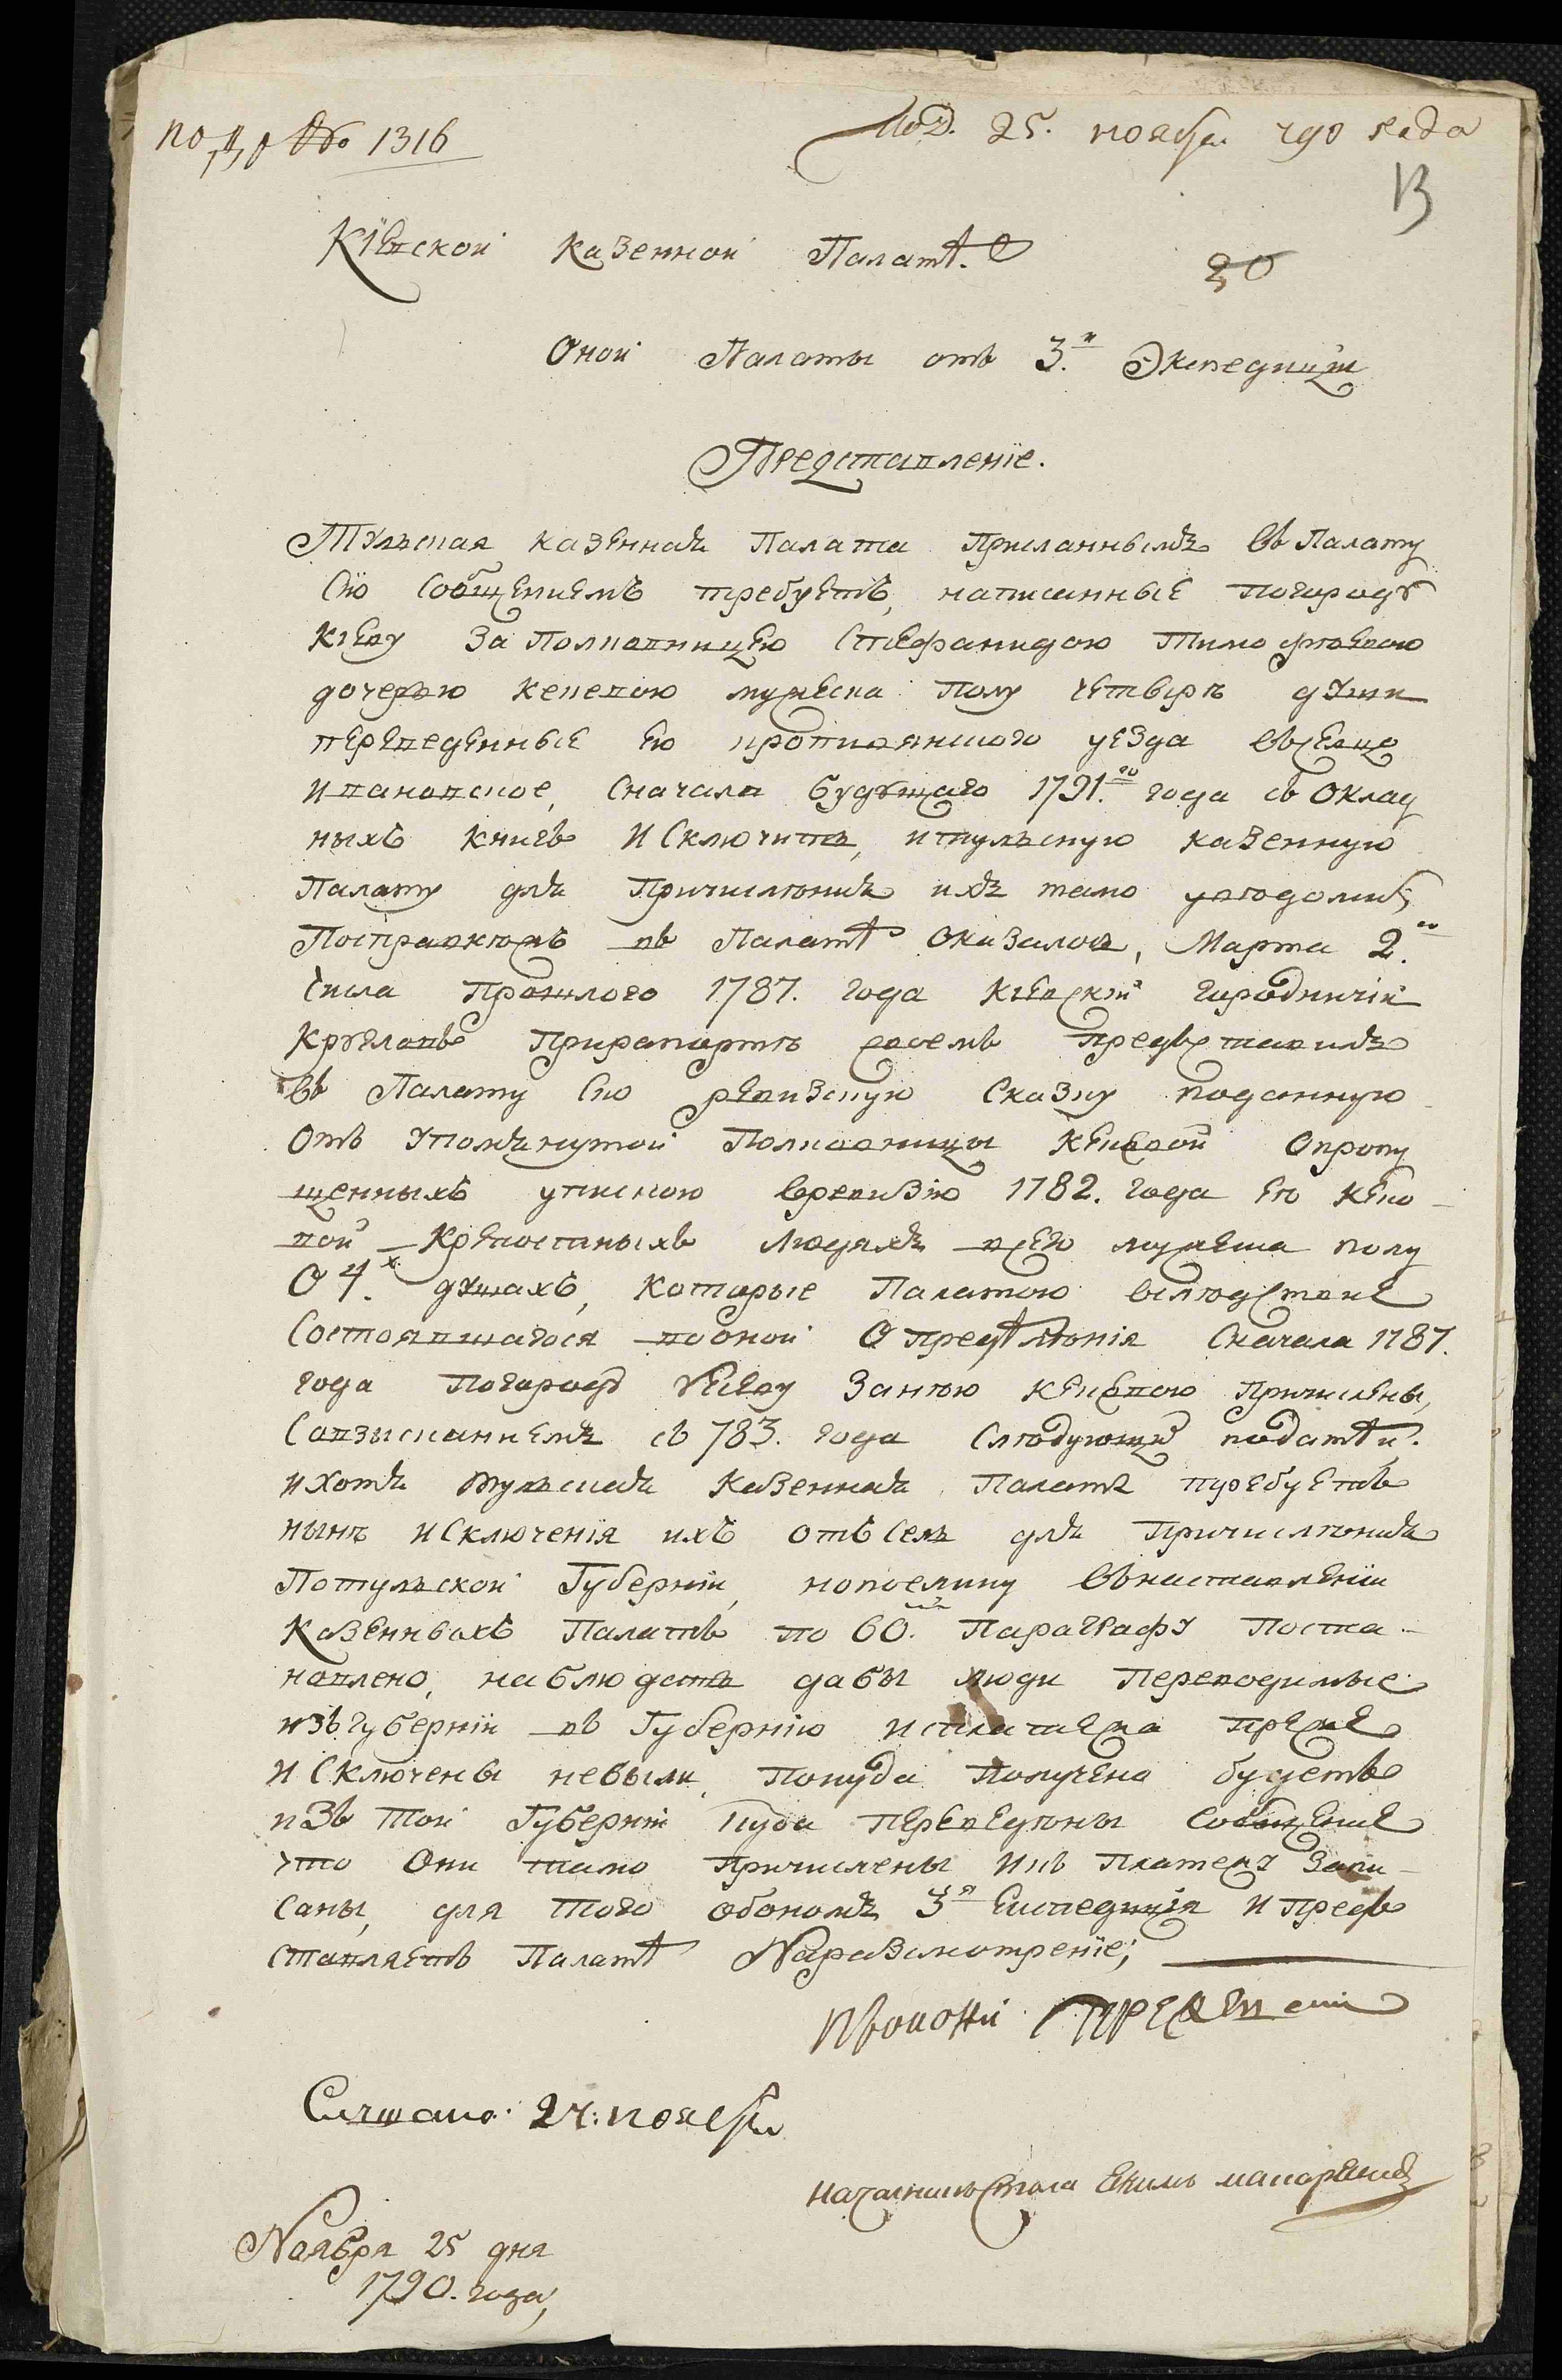 № 1316
Под. 25. ноября 790 года
13
Кіевской Казенной Палатѣ
30
Оной Палаты отъ 3.й Экспедиціи
Представленіе.
Тульская казенная Палата присланнымъ въ Палату
сію сообщениемъ требуетъ, написанные погороду
Киеву за Полковницею Стефанидою Тимофѣевою
дочерью мужеска полу четыръ души
переведенные ею уезда въсельцо
Ивановское, сначала будущаго 1791.го года съ Оклад
ныхъ книгъ исключить, итульскую казенную
Палату для Причислѣния ихъ тамо увѣдомить
Посправкѣ въ Палатѣ Оказалось, Марта 2.го
числа Прошлого 1787. года Киевский городничий
Кругловъ Прирапортъ своемъ представилъ
въ Палату сию ревизскую сказку поданную
отъ упомянутой Полковницы Опропу
щенныхъ учискою вревизию 1782. года ею
вой Крепостныхъ людяхъ мужеска полу
О 4.х душахъ, Которые Палатою вслѣдствие
Состоявшагося воной Опредѣлѣнія Сначала 1787.
года Погороду Киеву Занѣю причислены,
Совзысканиемъ съ 783. года Слѣдующий податѣй.
ихотя тульская Казенная Палата требуетъ
нынъ исключенія ихъ отъсель для Причислѣния
Потульской Губерніи, нопоелику вънаставленіи
Казенныхъ Палатъ по 60. Параграфу Поста-
новлено, наблюдать дабы люди Переводимые
изъгуберніи въ Губернію исплатежа преже
исключены небыли, Покуда Получено будетъ
изъ Той Губерніи куда переведены сообщение
что Они тамо Причислены ивъ Платежъ Запи-
саны, для Того обономъ 3я Експедиція и Пред
ставляетъ Палатѣ Наразсмотреніе;
Слушано 27: ноября
началникъ Стола Екимъ
Ноября 25 дня
1790. года,